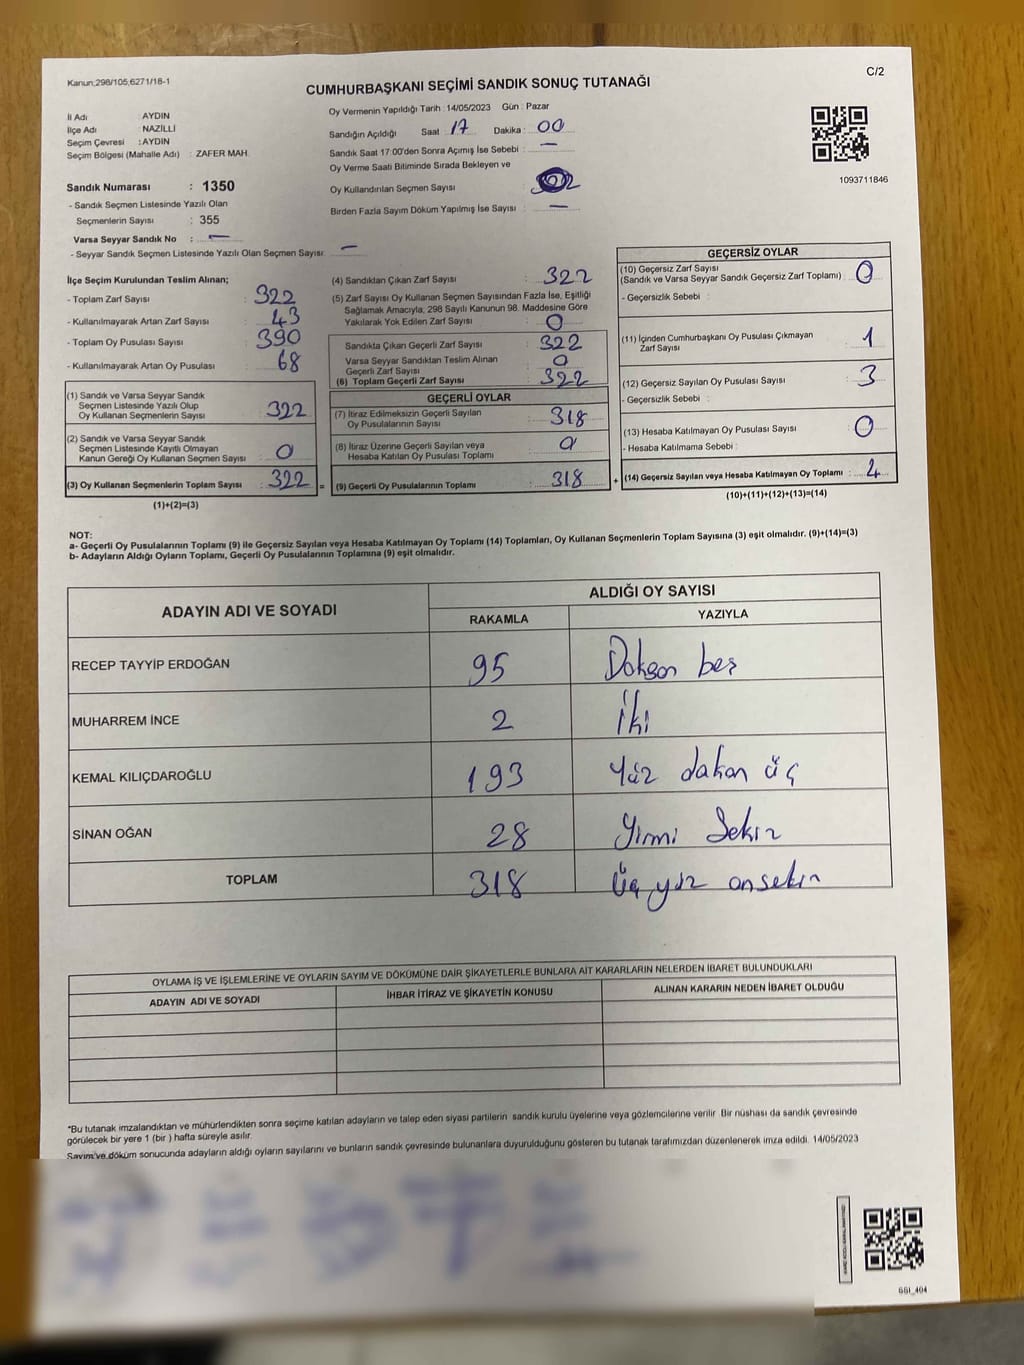 Kanun;298/105,6271/18-1
C/2
CUMHURBAŞKANI SEÇİMİ SANDIK SONUÇ TUTANAĞI
İl Adı : AYDIN
İlçe Adı : NAZİLLİ
Seçim Çevresi : AYDIN
Seçim Bölgesi (Mahalle Adı) : ZAFER MAH.
Oy Vermenin Yapıldığı Tarih : 14/05/2023 Gün : Pazar
Sandığın Açıldığı Saat : 17 Dakika : 00
Sandık Saat 17:00'den Sonra Açımış İse Sebebi : —
Oy Verme Saati Bitiminde Sırada Bekleyen ve
Oy Kullandırılan Seçmen Sayısı :
Birden Fazla Sayım Döküm Yapılmış İse Sayısı : —
1093711846
Sandık Numarası : 1350
- Sandık Seçmen Listesinde Yazılı Olan
Seçmenlerin Sayısı : 355
Varsa Seyyar Sandık No : —
- Seyyar Sandık Seçmen Listesinde Yazılı Olan Seçmen Sayısı: —
İlçe Seçim Kurulundan Teslim Alınan;
- Toplam Zarf Sayısı : 322
- Kullanılmayarak Artan Zarf Sayısı : 43
- Toplam Oy Pusulası Sayısı : 390
- Kullanılmayarak Artan Oy Pusulası : 68
(1) Sandık ve Varsa Seyyar Sandık
Seçmen Listesinde Yazılı Olup
Oy Kullanan Seçmenlerin Sayısı : 322
(2) Sandık ve Varsa Seyyar Sandık
Seçmen Listesinde Kayıtlı Olmayan
Kanun Gereği Oy Kullanan Seçmen Sayısı : 0
(3) Oy Kullanan Seçmenlerin Toplam Sayısı : 322 =
(1)+(2)=(3)
(4) Sandıktan Çıkan Zarf Sayısı : 322
(5) Zarf Sayısı Oy Kullanan Seçmen Sayısından Fazla İse, Eşitliği
Sağlamak Amacıyla, 298 Sayılı Kanunun 98. Maddesine Göre
Yakılarak Yok Edilen Zarf Sayısı : 0
Sandıkta Çıkan Geçerli Zarf Sayısı : 322
Varsa Seyyar Sandıktan Teslim Alınan
Geçerli Zarf Sayısı : 0
(6) Toplam Geçerli Zarf Sayısı : 322
GEÇERLİ OYLAR
(7) İtiraz Edilmeksizin Geçerli Sayılan
Oy Pusulalarının Sayısı : 318
(8) İtiraz Üzerine Geçerli Sayılan veya
Hesaba Katılan Oy Pusulası Toplamı : 0
(9) Geçerli Oy Pusulalarının Toplamı : 318 +
GEÇERSİZ OYLAR
(10) Geçersiz Zarf Sayısı
(Sandık ve Varsa Seyyar Sandık Geçersiz Zarf Toplamı) : 0
- Geçersizlik Sebebi :
(11) İçinden Cumhurbaşkanı Oy Pusulası Çıkmayan
Zarf Sayısı : 1
(12) Geçersiz Sayılan Oy Pusulası Sayısı : 3
- Geçersizlik Sebebi :
(13) Hesaba Katılmayan Oy Pusulası Sayısı : 0
- Hesaba Katılmama Sebebi :
(14) Geçersiz Sayılan veya Hesaba Katılmayan Oy Toplamı : 4
(10)+(11)+(12)+(13)=(14)
NOT:
a- Geçerli Oy Pusulalarının Toplamı (9) ile Geçersiz Sayılan veya Hesaba Katılmayan Oy Toplamı (14) Toplamları, Oy Kullanan Seçmenlerin Toplam Sayısına (3) eşit olmalıdır. (9)+(14)=(3)
b- Adayların Aldığı Oyların Toplamı, Geçerli Oy Pusulalarının Toplamına (9) eşit olmalıdır.
ADAYIN ADI VE SOYADI ALDIĞI OY SAYISI
RAKAMLA YAZIYLA
RECEP TAYYİP ERDOĞAN 95 Doksan beş
MUHARREM İNCE 2 İki
KEMAL KILIÇDAROĞLU 193 Yüz doksan üç
SİNAN OĞAN 28 Yirmi Sekiz
TOPLAM 318 Üç yüz onsekiz
OYLAMA İŞ VE İŞLEMLERİNE VE OYLARIN SAYIM VE DÖKÜMÜNE DAİR ŞİKAYETLERLE BUNLARA AİT KARARLARIN NELERDEN İBARET BULUNDUKLARI
ADAYIN ADI VE SOYADI İHBAR İTİRAZ VE ŞİKAYETİN KONUSU ALINAN KARARIN NEDEN İBARET OLDUĞU
*Bu tutanak imzalandıktan ve mühürlendikten sonra seçime katılan adayların ve talep eden siyasi partilerin sandık kurulu üyelerine veya gözlemcilerine verilir. Bir nüshası da sandık çevresinde
görülecek bir yere 1 (bir ) hafta süreyle asılır.
Sayım ve döküm sonucunda adayların aldığı oyların sayılarını ve bunların sandık çevresinde bulunanlara duyurulduğunu gösteren bu tutanak tarafımızdan düzenlenerek imza edildi. 14/05/2023